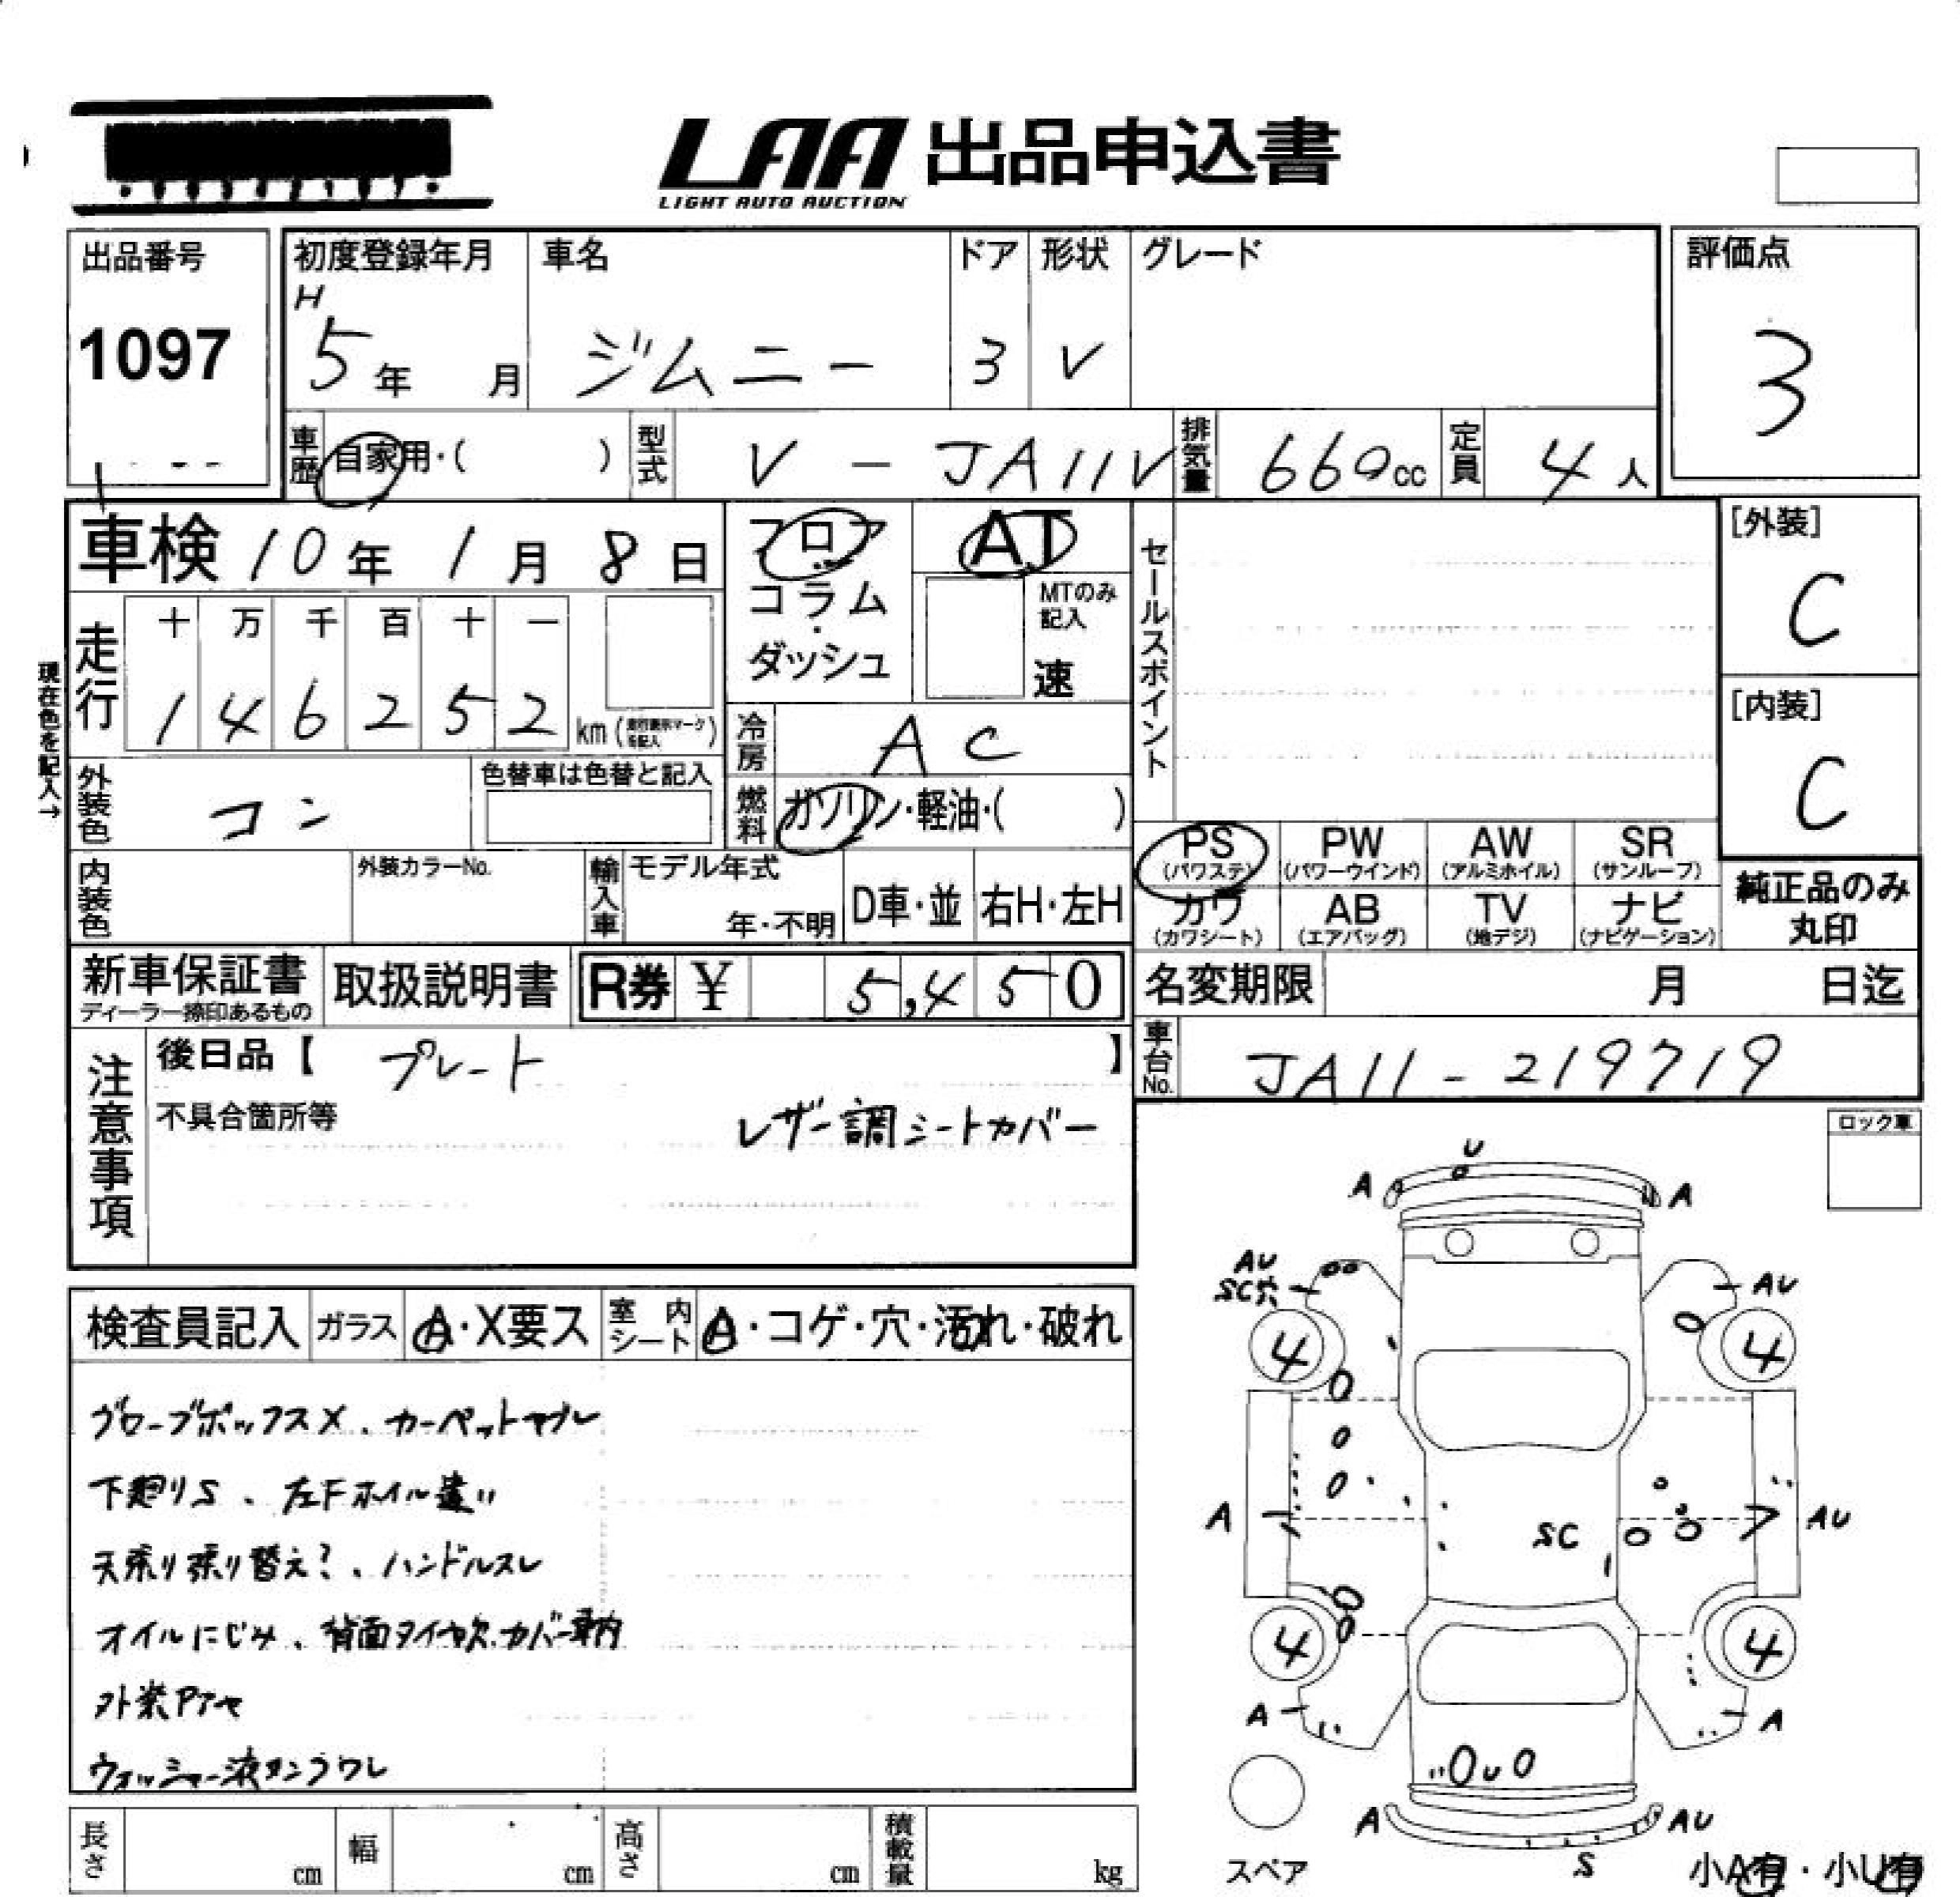 LAA 出品申込書
LIGHT AUTO AUCTION
出品番号
1097
初度登録年月
H
5年 月
車名
ジムニー
ドア
3
形状
V
グレード
評価点
3
車歴 自家用・( )
型式 V - JA11V
排気量 660cc
定員 4人
車検 10年 1月 8日
フロア
コラム
・
ダッシュ
AT
MTのみ
記入
速
セールスポイント
[外装]
C
[内装]
C
現在色を記入→
走行
十 万 千 百 十 一
1 4 6 2 5 2 km
冷房 AC
外装色 コン
色替車は色替と記入
燃料 ガソリン・軽油・( )
内装色
外装カラーNo.
輸入車
モデル年式
年・不明
D車・並
右H・左H
PS (パワステ)
PW (パワーウインド)
AW (アルミホイル)
SR (サンルーフ)
カワ (カワシート)
AB (エアバッグ)
TV (地デジ)
ナビ (ナビゲーション)
純正品のみ
丸印
新車保証書
ディーラー捺印あるもの
取扱説明書
R券 ¥ 5,450
名変期限 月 日迄
車台No. JA11-219719
注意事項
後日品【 プレート 】
不具合箇所等
レザー調シートカバー
ロック車
検査員記入 ガラス A・X要ス 室内シート A・コゲ・穴・汚れ・破れ
グローブボックスX、カーペットヤブレ
下廻りS、左Fホイル違い
天張り張り替え?、ハンドルスレ
オイルにじみ、背面タイヤ欠、カバー車内
外装Pアセ
ウォッシャー液タンクワレ
U
A A
AU
SC穴
AU
4 4
A SC AU
4 4
A A
U
A AU
S
スペア
小A有・小U有
長さ cm
幅 cm
高さ cm
積載量 kg